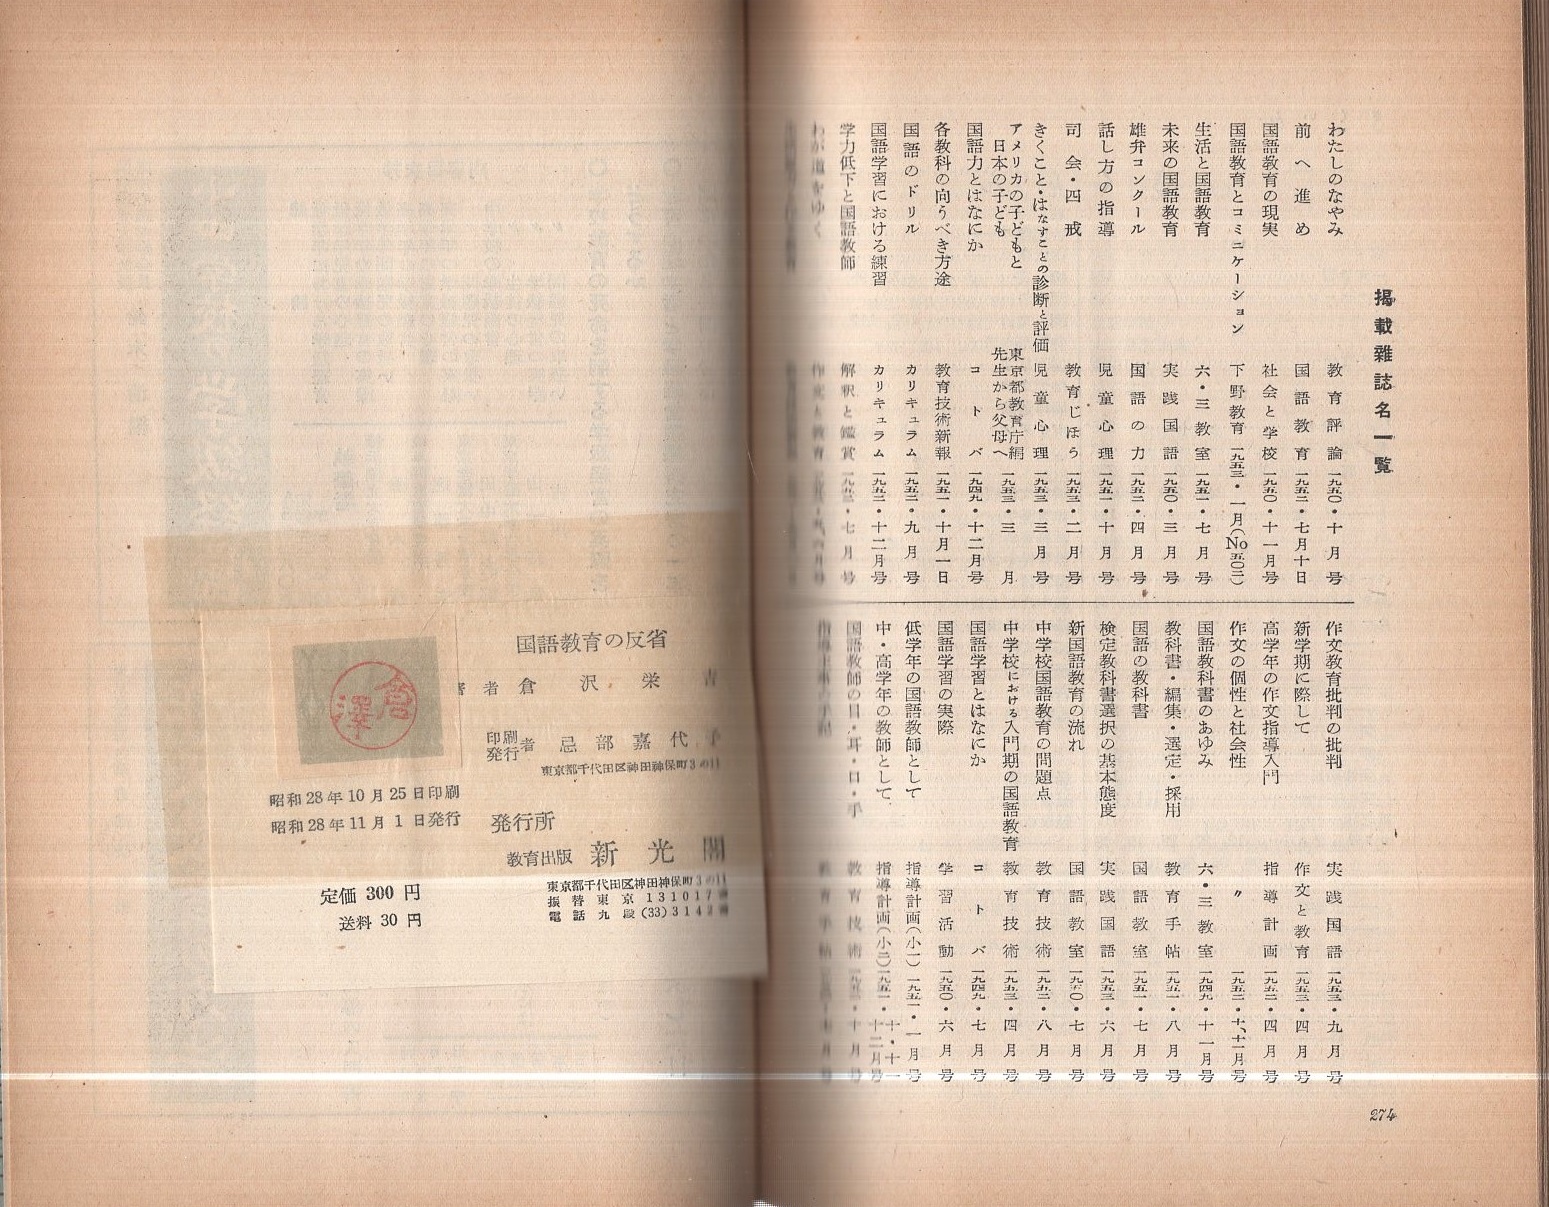 掲載雑誌名一覧
わたしのなやみ 教育評論 一九五〇・十月号
前へ進め 国語教育 一九五二・七月十日
国語教育の現実 社会と学校 一九五〇・十一月号
国語教育とコミニケーション 下野教育 一九五三・一月(No五〇二)
生活と国語教育 六・三教室 一九五一・七月号
未来の国語教育 実践国語 一九五〇・三月号
雄弁コンクール 国語の力 一九五二・四月号
話し方の指導 児童心理 一九五一・十月号
司会・四戒 教育じほう 一九五三・二月号
きくこと・はなすことの診断と評価 児童心理 一九五三・三月号
アメリカの子どもと日本の子ども 東京都教育庁編 先生から父母へ 一九五三・三月
国語力とはなにか コトバ 一九四九・十二月号
各教科の向うべき方途 教育技術新報 一九五一・十月一日
国語のドリル カリキュラム 一九五二・九月号
国語学習における練習 カリキュラム 一九五一・十二月号
学力低下と国語教師 解釈と鑑賞 一九五二・七月号
わが道をゆく 作文と教育
作文教育批判の批判 実践国語 一九五三・九月号
新学期に際して 作文と教育 一九五三・四月号
高学年の作文指導入門 指導計画 一九五二・四月号
作文の個性と社会性 〃 一九五二・十、十一月号
国語教科書のあゆみ 六・三教室 一九四九・十一月号
教科書・編集・選定・採用 教育手帖 一九五一・八月号
国語の教科書 国語教室 一九五一・七月号
検定教科書選択の基本態度 実践国語 一九五三・六月号
新国語教育の流れ 国語教室 一九五〇・七月号
中学校国語教育の問題点 教育技術 一九五二・八月号
中学校における入門期の国語教育 教育技術 一九五三・四月号
国語学習とはなにか コトバ 一九四九・七月号
国語学習の実際 学習活動 一九五〇・六月号
低学年の国語教師として 指導計画(小一) 一九五一・一月号
中・高学年の教師として 指導計画(小二) 一九五一・十・十一十二月号
国語教師の目・耳・口・手 教育技術 十月号
274
国語教育の反省
著者 倉沢栄吉
印刷発行者 忌部嘉代子
東京都千代田区神田神保町3の11
昭和28年10月25日印刷
昭和28年11月1日発行
発行所
教育出版 新光閣
東京都千代田区神田神保町3の11
振替東京131017番
電話九段(33)3142番
定価 300 円
送料 30 円
倉澤